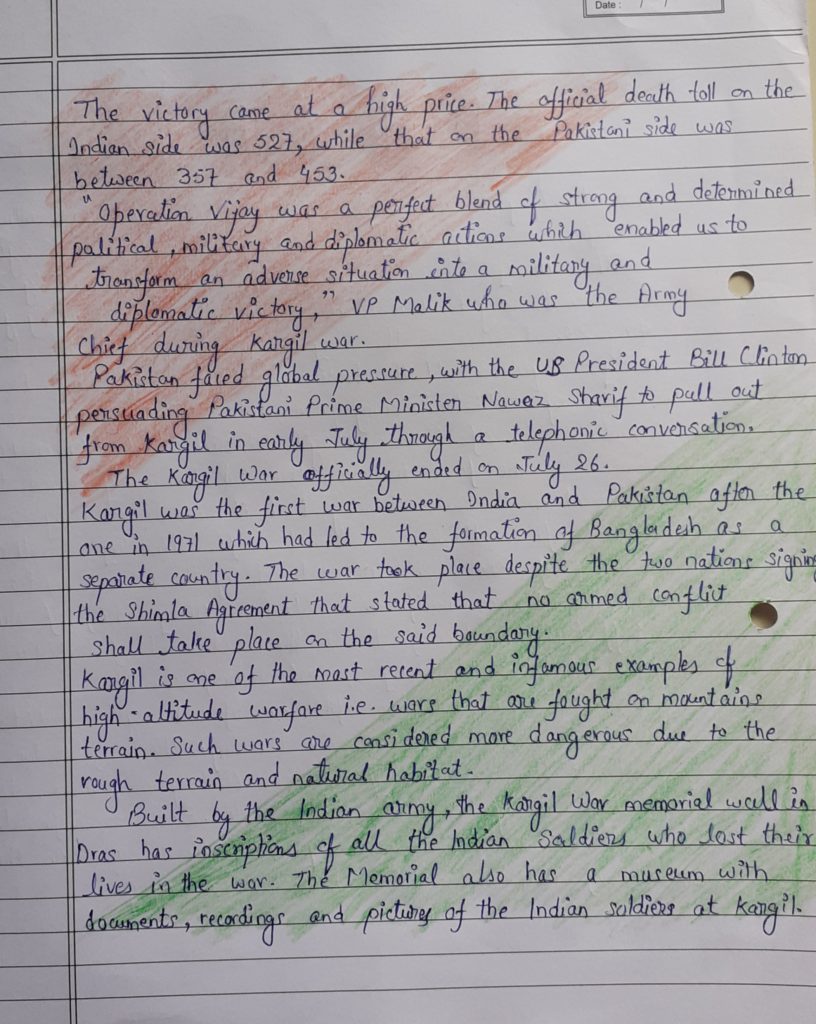 Date : / /
The victory came at a high price. The official death toll on the
Indian side was 527, while that on the Pakistani side was
between 357 and 453.
"Operation Vijay was a perfect blend of strong and determined
political, military and diplomatic actions which enabled us to
transform an adverse situation into a military and
diplomatic victory," VP Malik who was the Army
Chief during Kargil war.
Pakistan faced global pressure, with the US President Bill Clinton
persuading Pakistani Prime Minister Nawaz Sharif to pull out
from Kargil in early July through a telephonic conversation.
The Kargil War officially ended on July 26.
Kargil was the first war between India and Pakistan after the
one in 1971 which had led to the formation of Bangladesh as a
separate country. The war took place despite the two nations signing
the Shimla Agreement that stated that no armed conflict
shall take place on the said boundary.
Kargil is one of the most recent and infamous examples of
high-altitude warfare i.e. wars that are fought on mountains
terrain. Such wars are considered more dangerous due to the
rough terrain and natural habitat.
Built by the Indian army, the Kargil War memorial wall in
Dras has inscriptions of all the Indian Soldiers who lost their
lives in the war. The Memorial also has a museum with
documents, recordings and pictures of the Indian soldiers at Kargil.